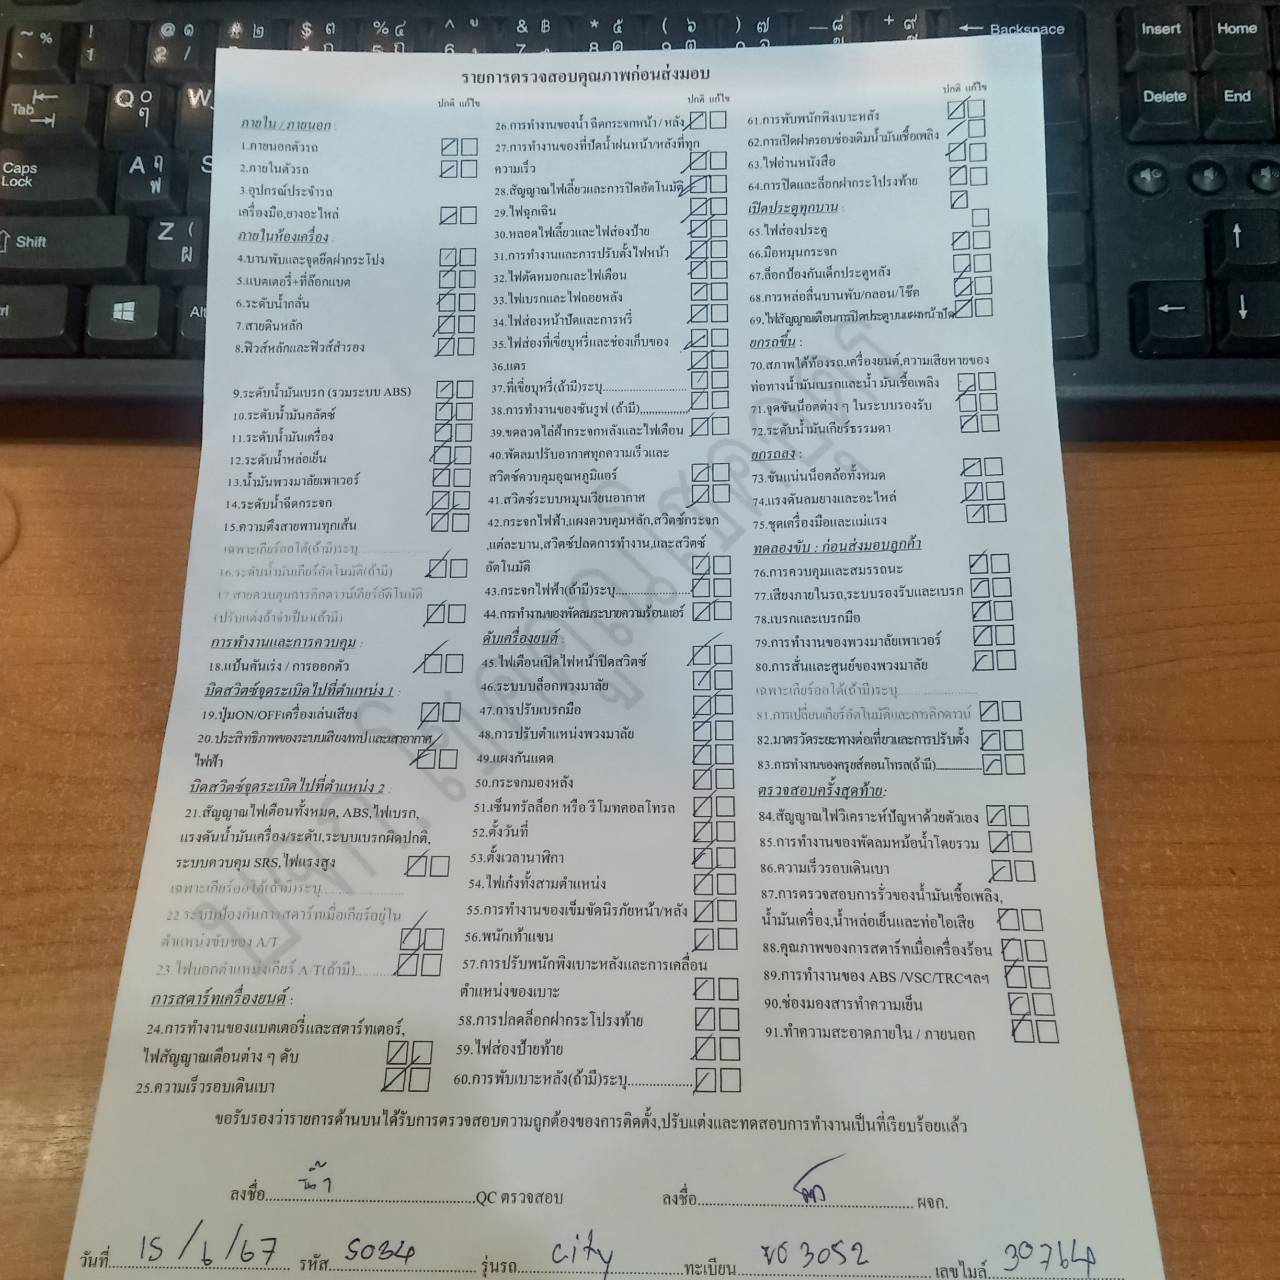 รายการตรวจสอบคุณภาพก่อนส่งมอบ
ปกติ แก้ไข
ภายใน / ภายนอก :
1.ภายนอกตัวรถ
2.ภายในตัวรถ
3.อุปกรณ์ประจำรถ
เครื่องมือ,ยางอะไหล่
ภายในห้องเครื่อง :
4.บานพับและจุดยึดฝากระโปง
5.แบตเตอรี่+ที่ล๊อกแบต
6.ระดับน้ำกลั่น
7.สายดินหลัก
8.ฟิวส์หลักและฟิวส์สำรอง
9.ระดับน้ำมันเบรก (รวมระบบ ABS)
10.ระดับน้ำมันคลัตซ์
11.ระดับน้ำมันเครื่อง
12.ระดับน้ำหล่อเย็น
13.น้ำมันพวงมาลัยเพาเวอร์
14.ระดับน้ำฉีดกระจก
15.ความตึงสายพานทุกเส้น
เฉพาะเกียร์ออโต้(ถ้ามี)ระบุ
16.ระดับน้ำมันเกียร์อัตโนมัติ(ถ้ามี)
17.สายควบคุมการคิกดาวน์เกียร์อัตโนมัติ
(ปรับแต่งถ้าจำเป็น)(ถ้ามี)
การทำงานและการควบคุม :
18.แป้นคันเร่ง / การออกตัว
บิดสวิตซ์จุดระเบิดไปที่ตำแหน่ง 1 :
19.ปุ่มON/OFFเครื่องเล่นเสียง
20.ประสิทธิภาพของระบบเสียง/เทป และเสาอากาศ
ไฟฟ้า
บิดสวิตซ์จุดระเบิดไปที่ตำแหน่ง 2 :
21.สัญญาณไฟเตือนทั้งหมด, ABS,ไฟเบรก,
แรงดันน้ำมันเครื่อง/ระดับ,ระบบเบรกผิดปกติ,
ระบบควบคุม SRS,ไฟแรงสูง
เฉพาะเกียร์ออโต้(ถ้ามี)ระบุ
22.ระบบป้องกันการสตาร์ทเมื่อเกียร์อยู่ใน
ตำแหน่งขับของ A/T
23.ไฟบอกตำแหน่งเกียร์ A/T(ถ้ามี)
การสตาร์ทเครื่องยนต์ :
24.การทำงานของแบตเตอรี่และสตาร์ทเตอร์,
ไฟสัญญาณเตือนต่าง ๆ ดับ
25.ความเร็วรอบเดินเบา
ปกติ แก้ไข
26.การทำงานของน้ำ ฉีดกระจกหน้า / หลัง
27.การทำงานของที่ปัดน้ำฝนหน้า/หลังที่ทุก
ความเร็ว
28.สัญญาณไฟเลี้ยวและการปิดอัตโนมัติ
29.ไฟฉุกเฉิน
30.หลอดไฟเลี้ยวและไฟส่องป้าย
31.การทำงานและการปรับตั้งไฟหน้า
32.ไฟตัดหมอกและไฟเตือน
33.ไฟเบรกและไฟถอยหลัง
34.ไฟส่องหน้าปัดและการหรี่
35.ไฟส่องที่เขี่ยบุหรี่และช่องเก็บของ
36.แตร
37.ที่เขี่ยบุหรี่(ถ้ามี)ระบุ
38.การทำงานของซันรูฟ (ถ้ามี)
39.ขดลวดไล่ฝ้ากระจกหลังและไฟเตือน
40.พัดลมปรับอากาศทุกความเร็วและ
สวิตซ์ควบคุมอุณหภูมิแอร์
41.สวิตซ์ระบบหมุนเวียนอากาศ
42.กระจกไฟฟ้า,แผงควบคุมหลัก,สวิตซ์กระจก
,แต่ละบาน,สวิตซ์ปลดการทำงาน,และสวิตซ์
อัตโนมัติ
43.กระจกไฟฟ้า(ถ้ามี)ระบุ
44.การทำงานของพัดลมระบายความร้อนแอร์
ดับเครื่องยนต์ :
45.ไฟเตือนเปิดไฟหน้าปิดสวิตซ์
46.ระบบบล็อกพวงมาลัย
47.การปรับเบรกมือ
48.การปรับตำแหน่งพวงมาลัย
49.แผงกันแดด
50.กระจกมองหลัง
51.เซ็นทรัลล็อก หรือ รีโมทคอลโทรล
52.ตั้งวันที่
53.ตั้งเวลานาฬิกา
54.ไฟเก๋งทั้งสามตำแหน่ง
55.การทำงานของเข็มขัดนิรภัยหน้า/หลัง
56.พนักเท้าแขน
57.การปรับพนักพิงเบาะหลังและการเคลื่อน
ตำแหน่งของเบาะ
58.การปลดล็อกฝากระโปรงท้าย
59.ไฟส่องป้ายท้าย
60.การพับเบาะหลัง(ถ้ามี)ระบุ
ปกติ แก้ไข
61.การพับพนักพิงเบาะหลัง
62.การเปิดฝาครอบช่องเติมน้ำมันเชื้อเพลิง
63.ไฟอ่านหนังสือ
64.การปิดและล็อกฝากระโปรงท้าย
เปิดประตูทุกบาน :
65.ไฟส่องประตู
66.มือหมุนกระจก
67.ล็อกป้องกันเด็กประตูหลัง
68.การหล่อลื่นบานพับ/กลอน/โช๊ค
69.ไฟสัญญาณเตือนการปิดประตูบนแผงหน้าปัด
ยกรถขึ้น :
70.สภาพใต้ท้องรถ,เครื่องยนต์,ความเสียหายของ
ท่อทางน้ำมันเบรกและน้ำ มันเชื้อเพลิง
71.จุดขันน็อตต่าง ๆ ในระบบรองรับ
72.ระดับน้ำมันเกียร์ธรรมดา
ยกรถลง :
73.ขันแน่นน็อตล้อทั้งหมด
74.แรงดันลมยางและอะไหล่
75.ชุดเครื่องมือและแม่แรง
ทดลองขับ : ก่อนส่งมอบลูกค้า
76.การควบคุมและสมรรถนะ
77.เสียงภายในรถ,ระบบรองรับและเบรก
78.เบรกและเบรกมือ
79.การทำงานของพวงมาลัยเพาเวอร์
80.การสั่นและศูนย์ของพวงมาลัย
เฉพาะเกียร์ออโต้(ถ้ามี)ระบุ
81.การเปลี่ยนเกียร์อัตโนมัติและการคิกดาวน์
82.มาตรวัดระยะทางต่อเที่ยวและการปรับตั้ง
83.การทำงานของครุยส์คอนโทรล(ถ้ามี)
ตรวจสอบครั้งสุดท้าย:
84.สัญญาณไฟวิเคราะห์ปัญหาด้วยตัวเอง
85.การทำงานของพัดลมหม้อน้ำโดยรวม
86.ความเร็วรอบเดินเบา
87.การตรวจสอบการรั่วของน้ำมันเชื้อเพลิง,
น้ำมันเครื่อง,น้ำหล่อเย็นและท่อไอเสีย
88.คุณภาพของการสตาร์ทเมื่อเครื่องร้อน
89.การทำงานของ ABS /VSC/TRCฯลฯ
90.ช่องมองสารทำความเย็น
91.ทำความสะอาดภายใน / ภายนอก
ขอรับรองว่ารายการด้านบนได้รับการตรวจสอบความถูกต้องของการติดตั้ง,ปรับแต่งและทดสอบการทำงานเป็นที่เรียบร้อยแล้ว
ลงชื่อ QC ตรวจสอบ ลงชื่อ ผจก.
วันที่ 15/6/67 รหัส 5034 รุ่นรถ City ทะเบียน 3052 เลขไมล์ 30764
Backspace
Insert
Home
Delete
End
Tab
Caps Lock
Shift